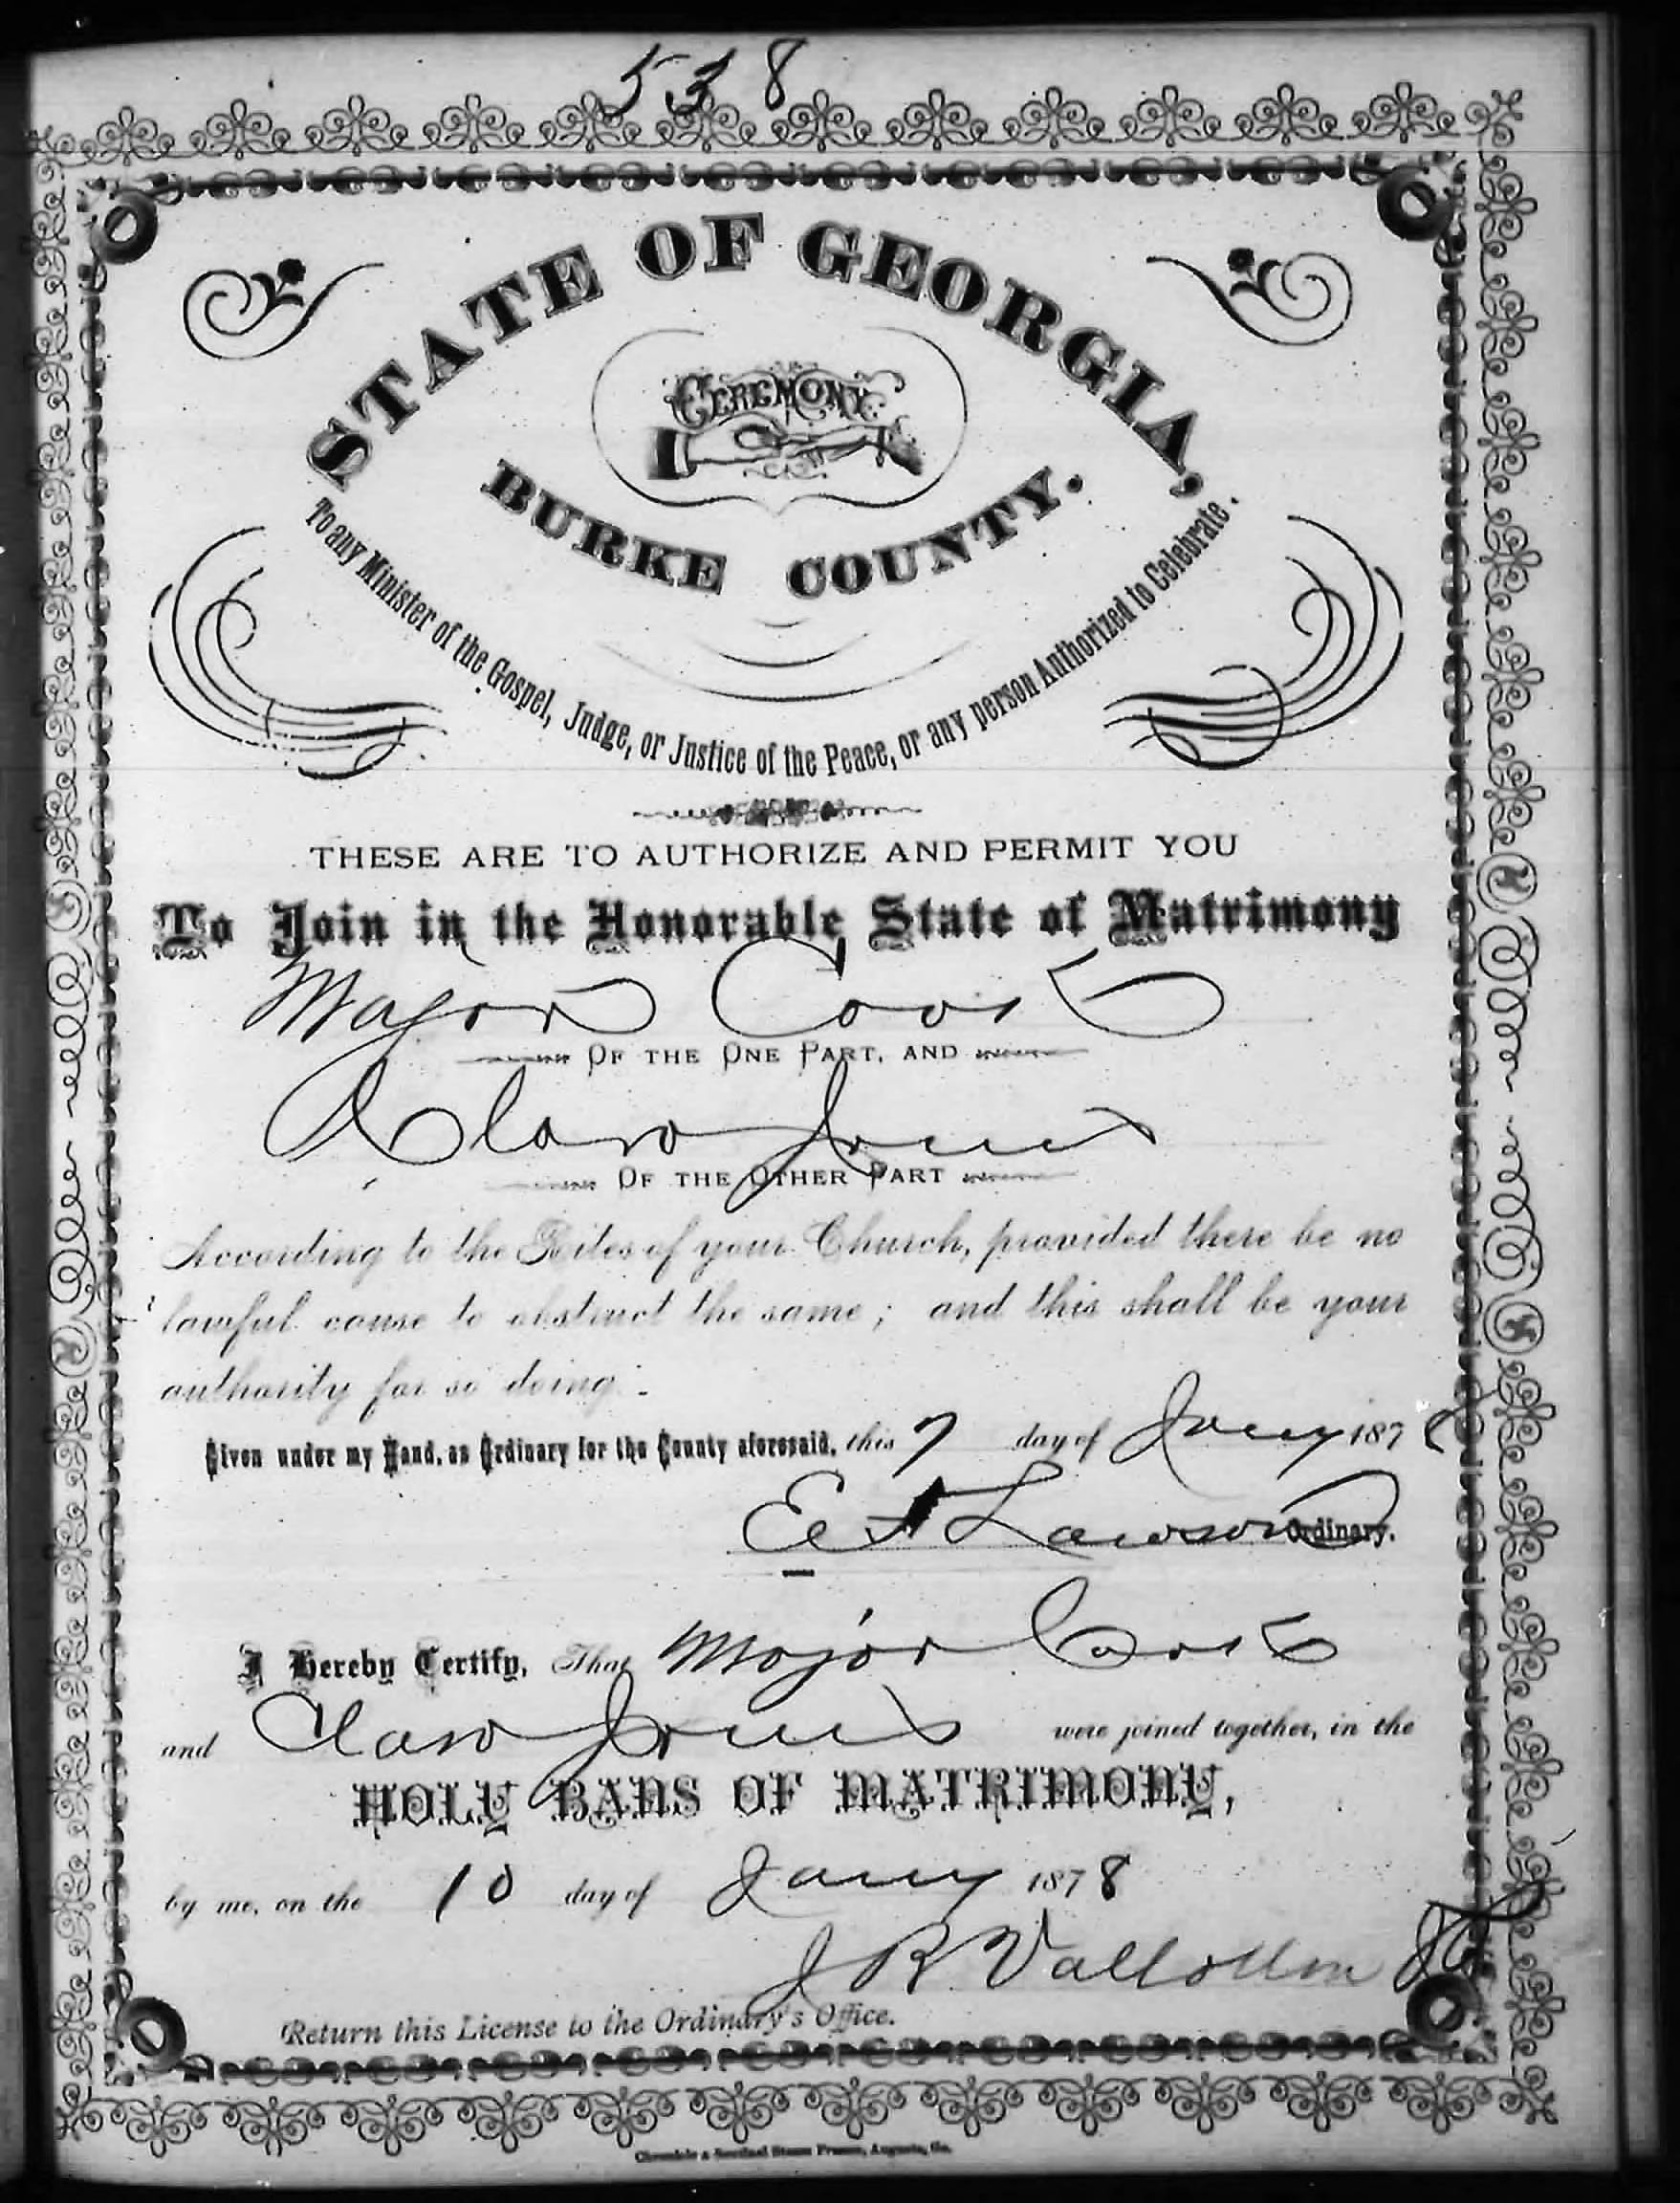 538
STATE OF GEORGIA,
CEREMONY
BURKE COUNTY.
To any Minister of the Gospel, Judge, or Justice of the Peace, or any person Authorized to Celebrate.
THESE ARE TO AUTHORIZE AND PERMIT YOU
To Join in the Honorable State of Matrimony
Major
OF THE ONE PART, AND
Jones
OF THE OTHER PART
According to the Rites of your Church, provided there be no
lawful cause to obstruct the same; and this shall be your
authority for so doing.
Given under my Hand, as Ordinary for the County aforesaid, this 7 day of Jany 1878
E F Lawson Ordinary.
I Hereby Certify, That Major
and Jones were joined together, in the
HOLY BANS OF MATRIMONY,
by me, on the 10 day of Jany 1878
J R Vallotton
Return this License to the Ordinary's Office.
Chronicle & Sentinel Steam Presses, Augusta, Ga.